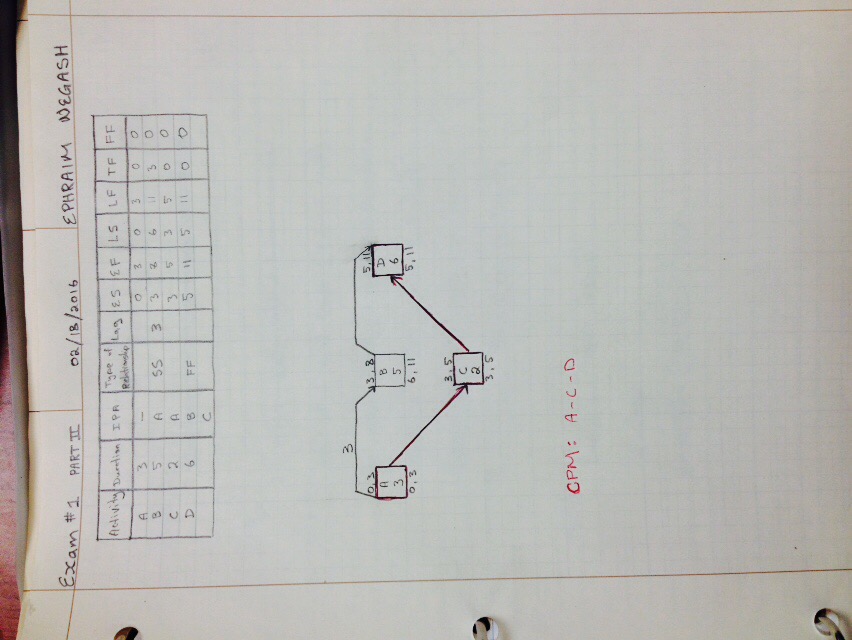 Exam #1 PART II 02/18/2016 EPHRAIM NEGASH
Activity Duration IPA Type of Relationship Lag ES EF LS LF TF FF
A 3 - 0 3 0 3 0 0
B 5 A SS 3 3 8 6 11 3 0
C 2 A 3 5 3 5 0 0
D 6 B FF 5 11 5 11 0 0
C
3
0,3
A
3
0,3
3,8
B
5
6,11
5,11
D
6
5,11
3,5
C
2
3,5
CPM: A-C-D